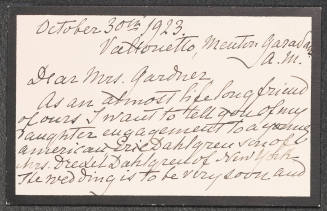 October 30th 1923.
Valtonetto, Menton Garavan
A.M.
Dear Mrs. Gardner
As an almost life long friend
of ours I want to tell you of my
daughter engagement to a young
american Eric Dahlgren son of
Mrs. Dahlgren of New York
The wedding is to be very soon and